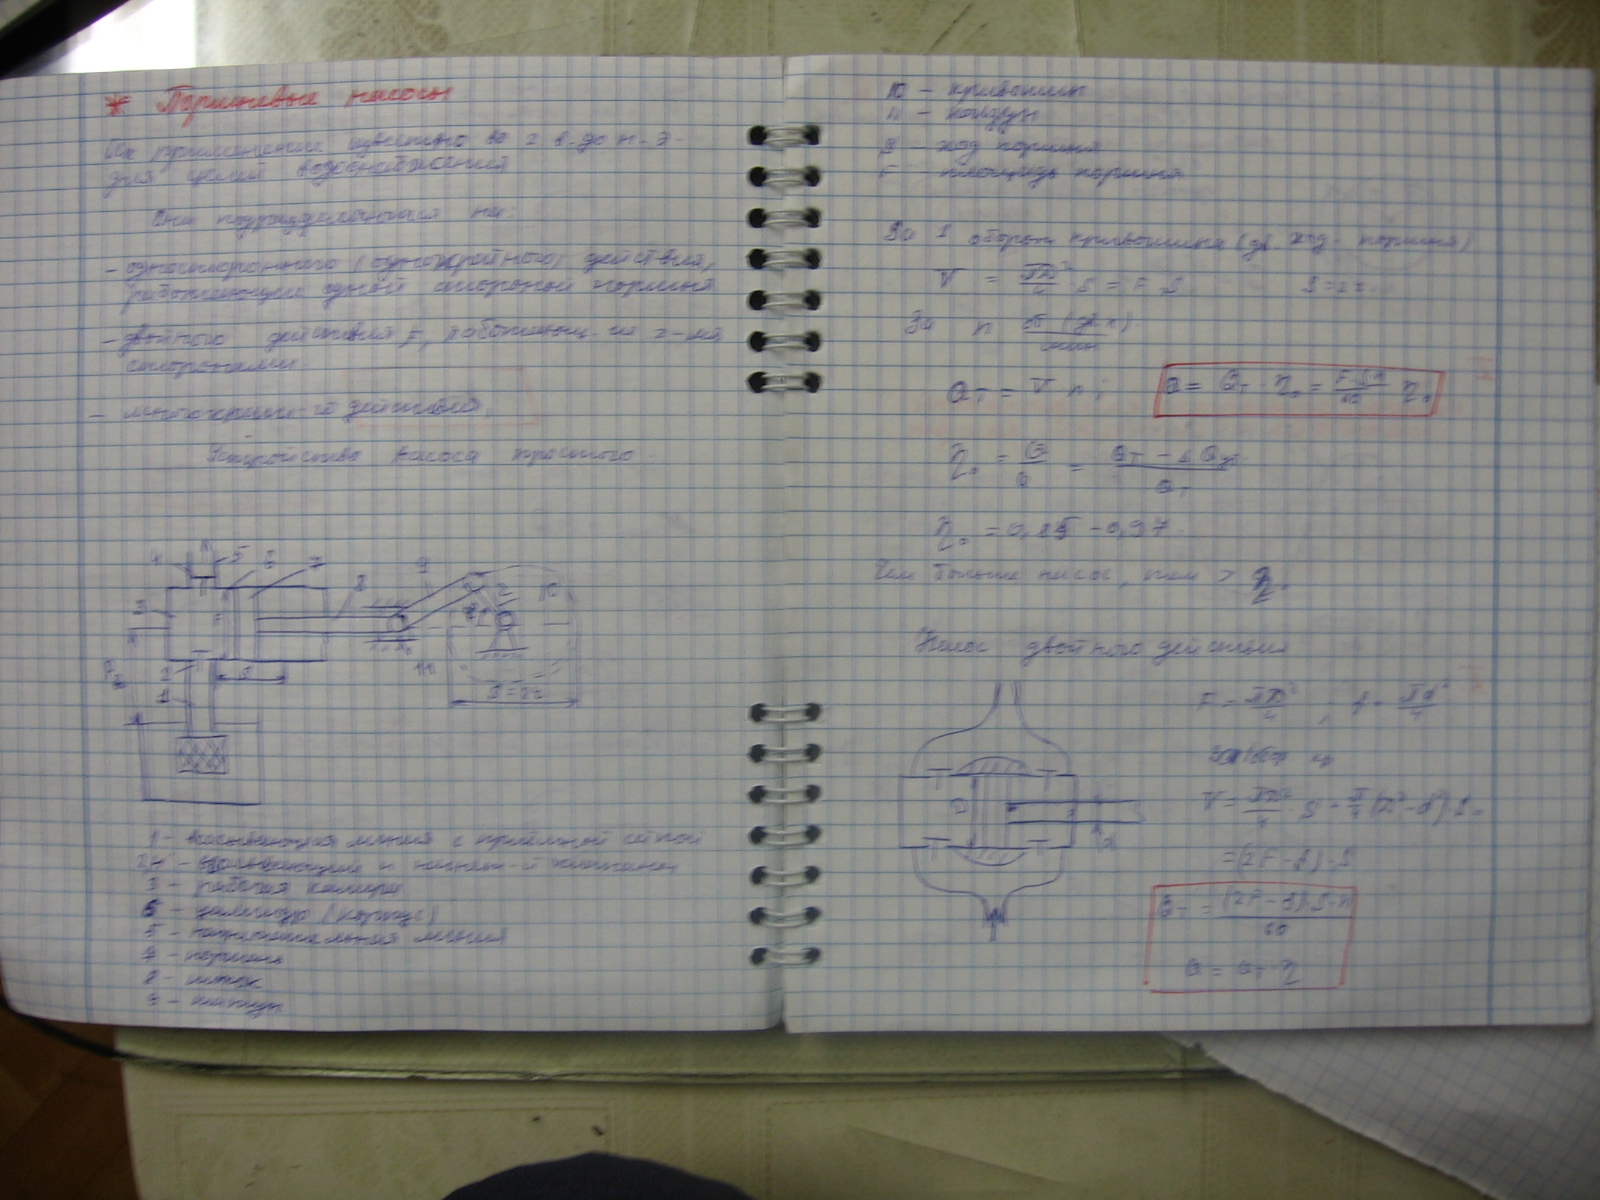 * Поршневые насосы
Их применение известно во 2 в. до н.э.
для целей водоснабжения
Они подразделяются на:
- одностороннего (однократного) действия,
работающие одной стороной поршня
- двойного действия, работающ. 2-мя
сторонами.
- многократн-го действия.
Устройство насоса простого.
4 5 6 7 8 9 10
3
F
2
S
1
11
S=2r
1 - всасывающая линия с приёмной сеткой
2,4 - всасывающий и нагнет-й клапаны
3 - рабочая камера
6 - цилиндр (корпус)
5 - нагнетательная линия
7 - поршень
8 - шток
9 - шатун
10 - кривошип
11 - ползун
S - ход поршня
F - площадь поршня
За 1 оборот кривошипа (дв. ход. поршня)
V = πD²/4 S = F S S=2r
За n об (дв.х)/мин
Qт = V n ; Q = Qт · η₀ = F·S·n/60 η₀
η₀ = Q/Q = Qт - ΔQут/Qт
η₀ = 0,85 - 0,97.
Чем больше насос, тем > η₀
Насос двойного действия
F = πD²/4 , f = πd²/4
D
d
V = πD²/4 S + π/4 (D² - d²)·S =
= (2F - f)·S
Qт = (2F - f)·S·n/60
Q = Qт·η